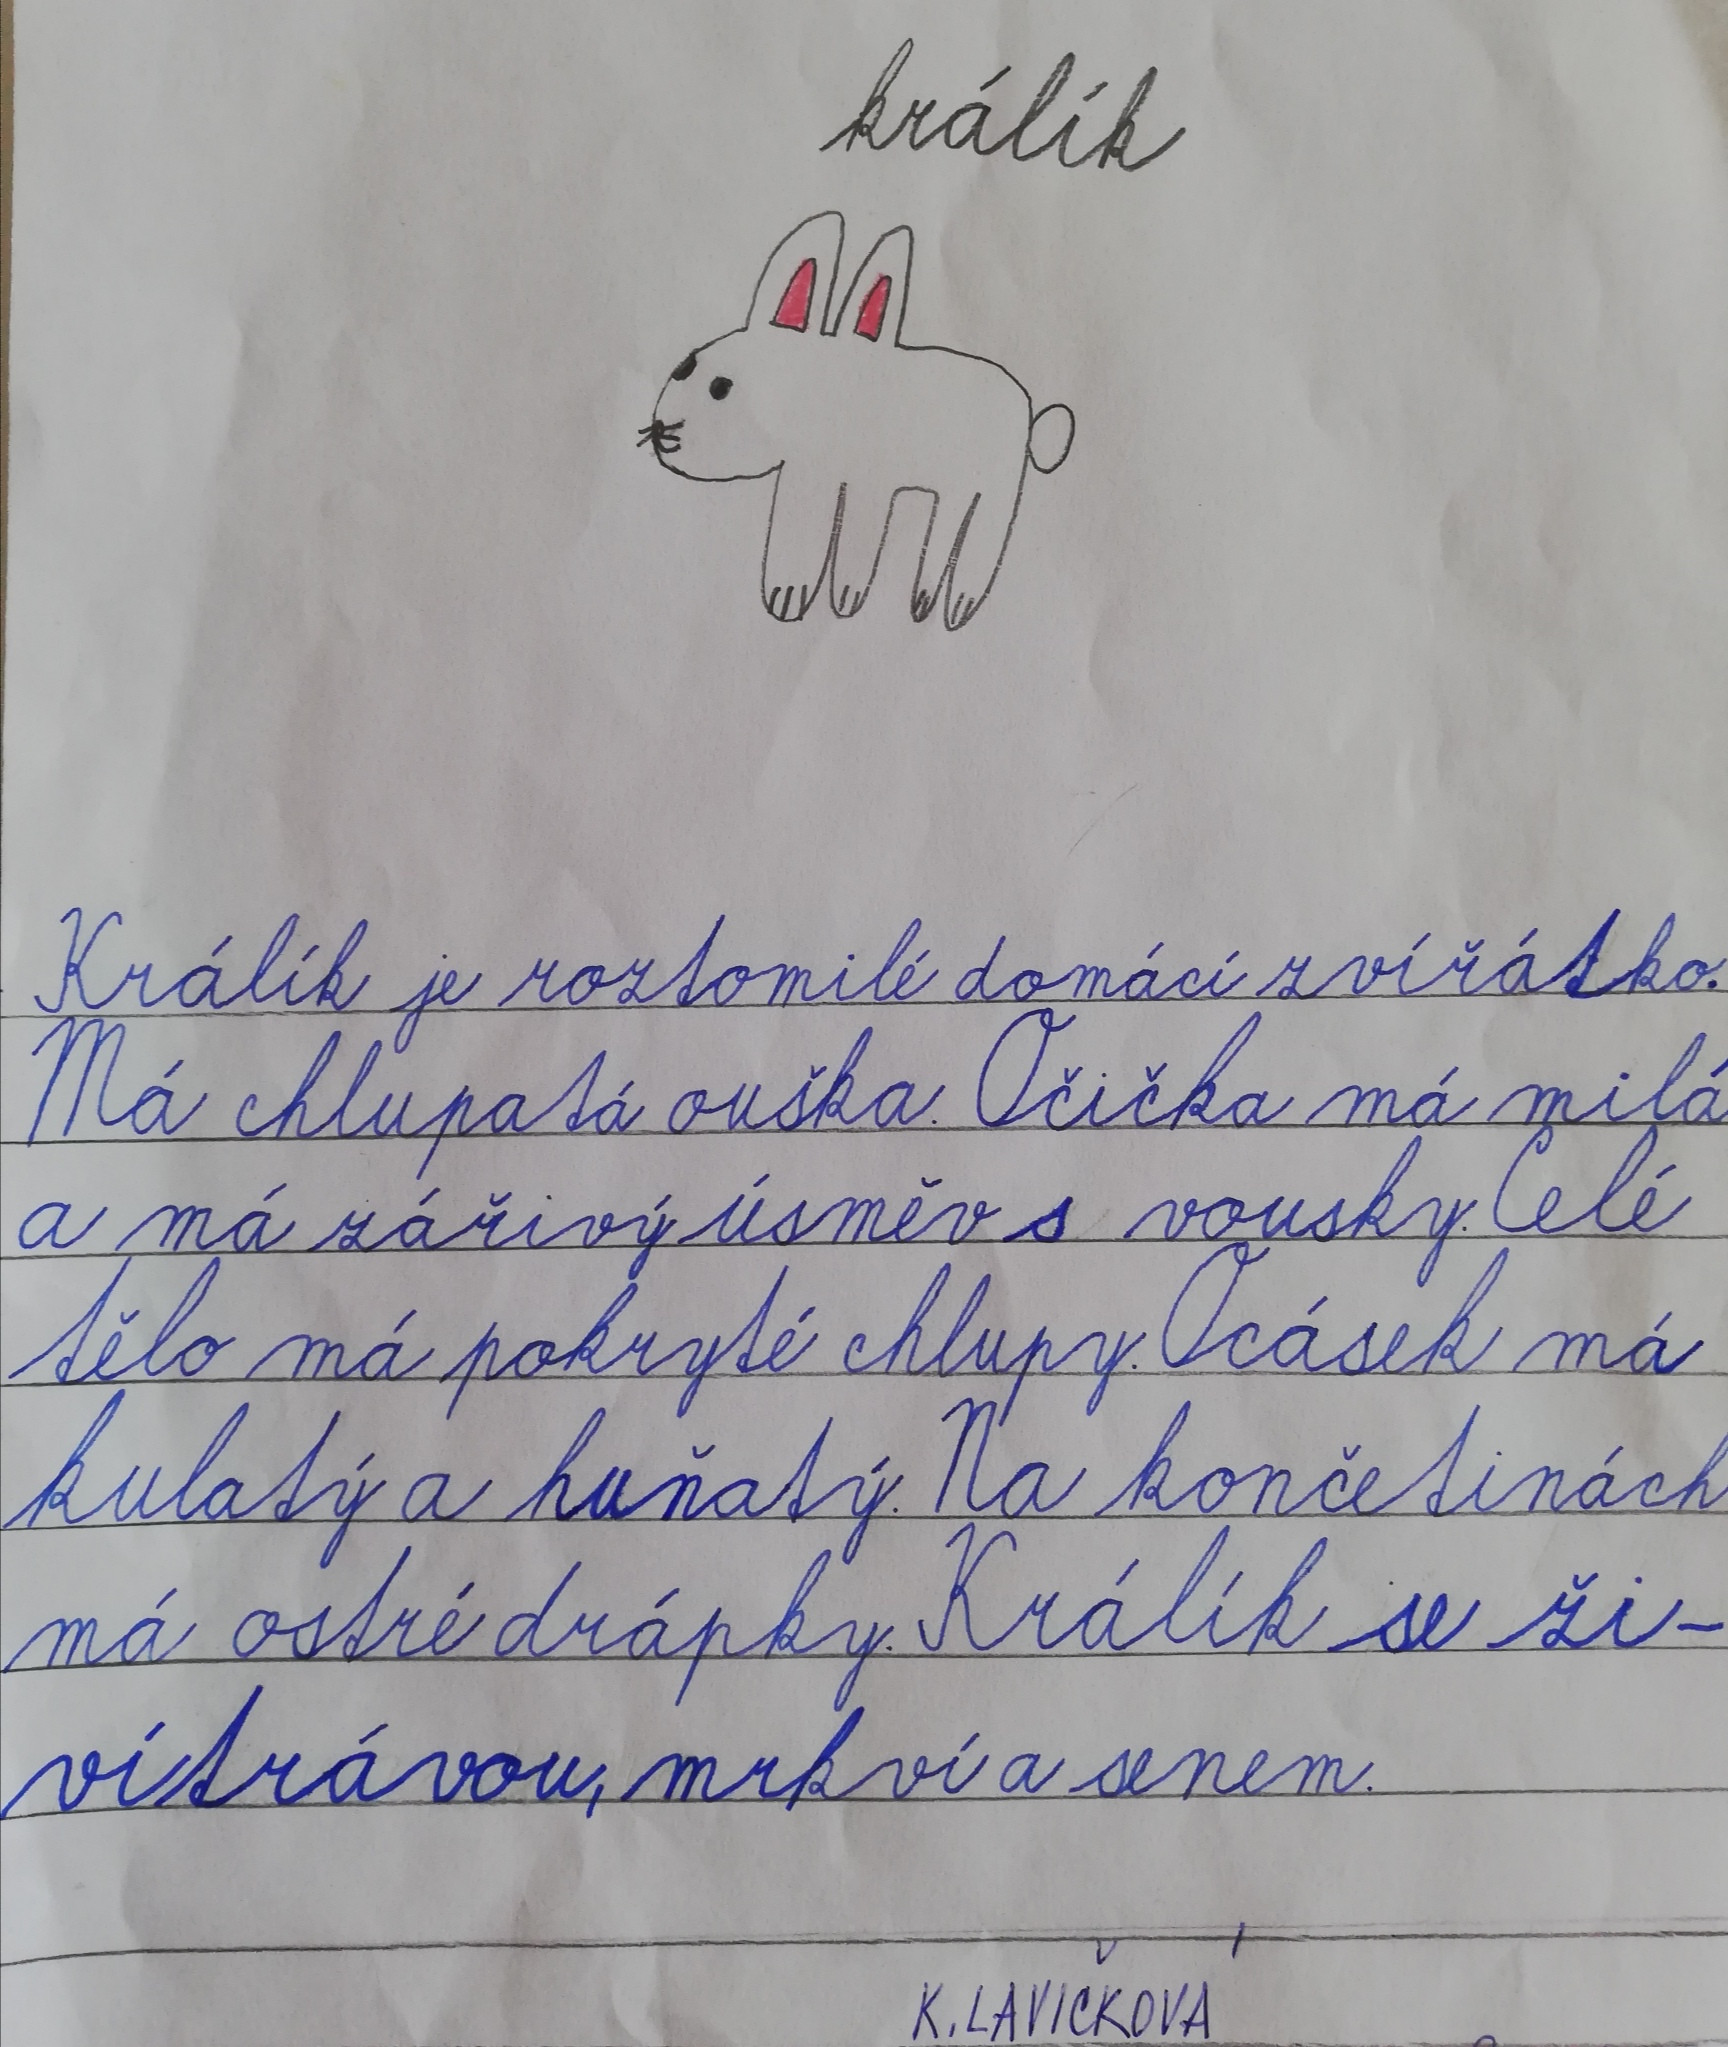 králík
Králík je roztomilé domácí zvířátko.
Má chlupatá ouška. Očička má milá
a má zářivý úsměv s vousky. Celé
tělo má pokryté chlupy. Ocásek má
kulatý a huňatý. Na končetinách
má ostré drápky. Králík se ži-
ví trávou, mrkví a senem.
K. LAVIČKOVÁ